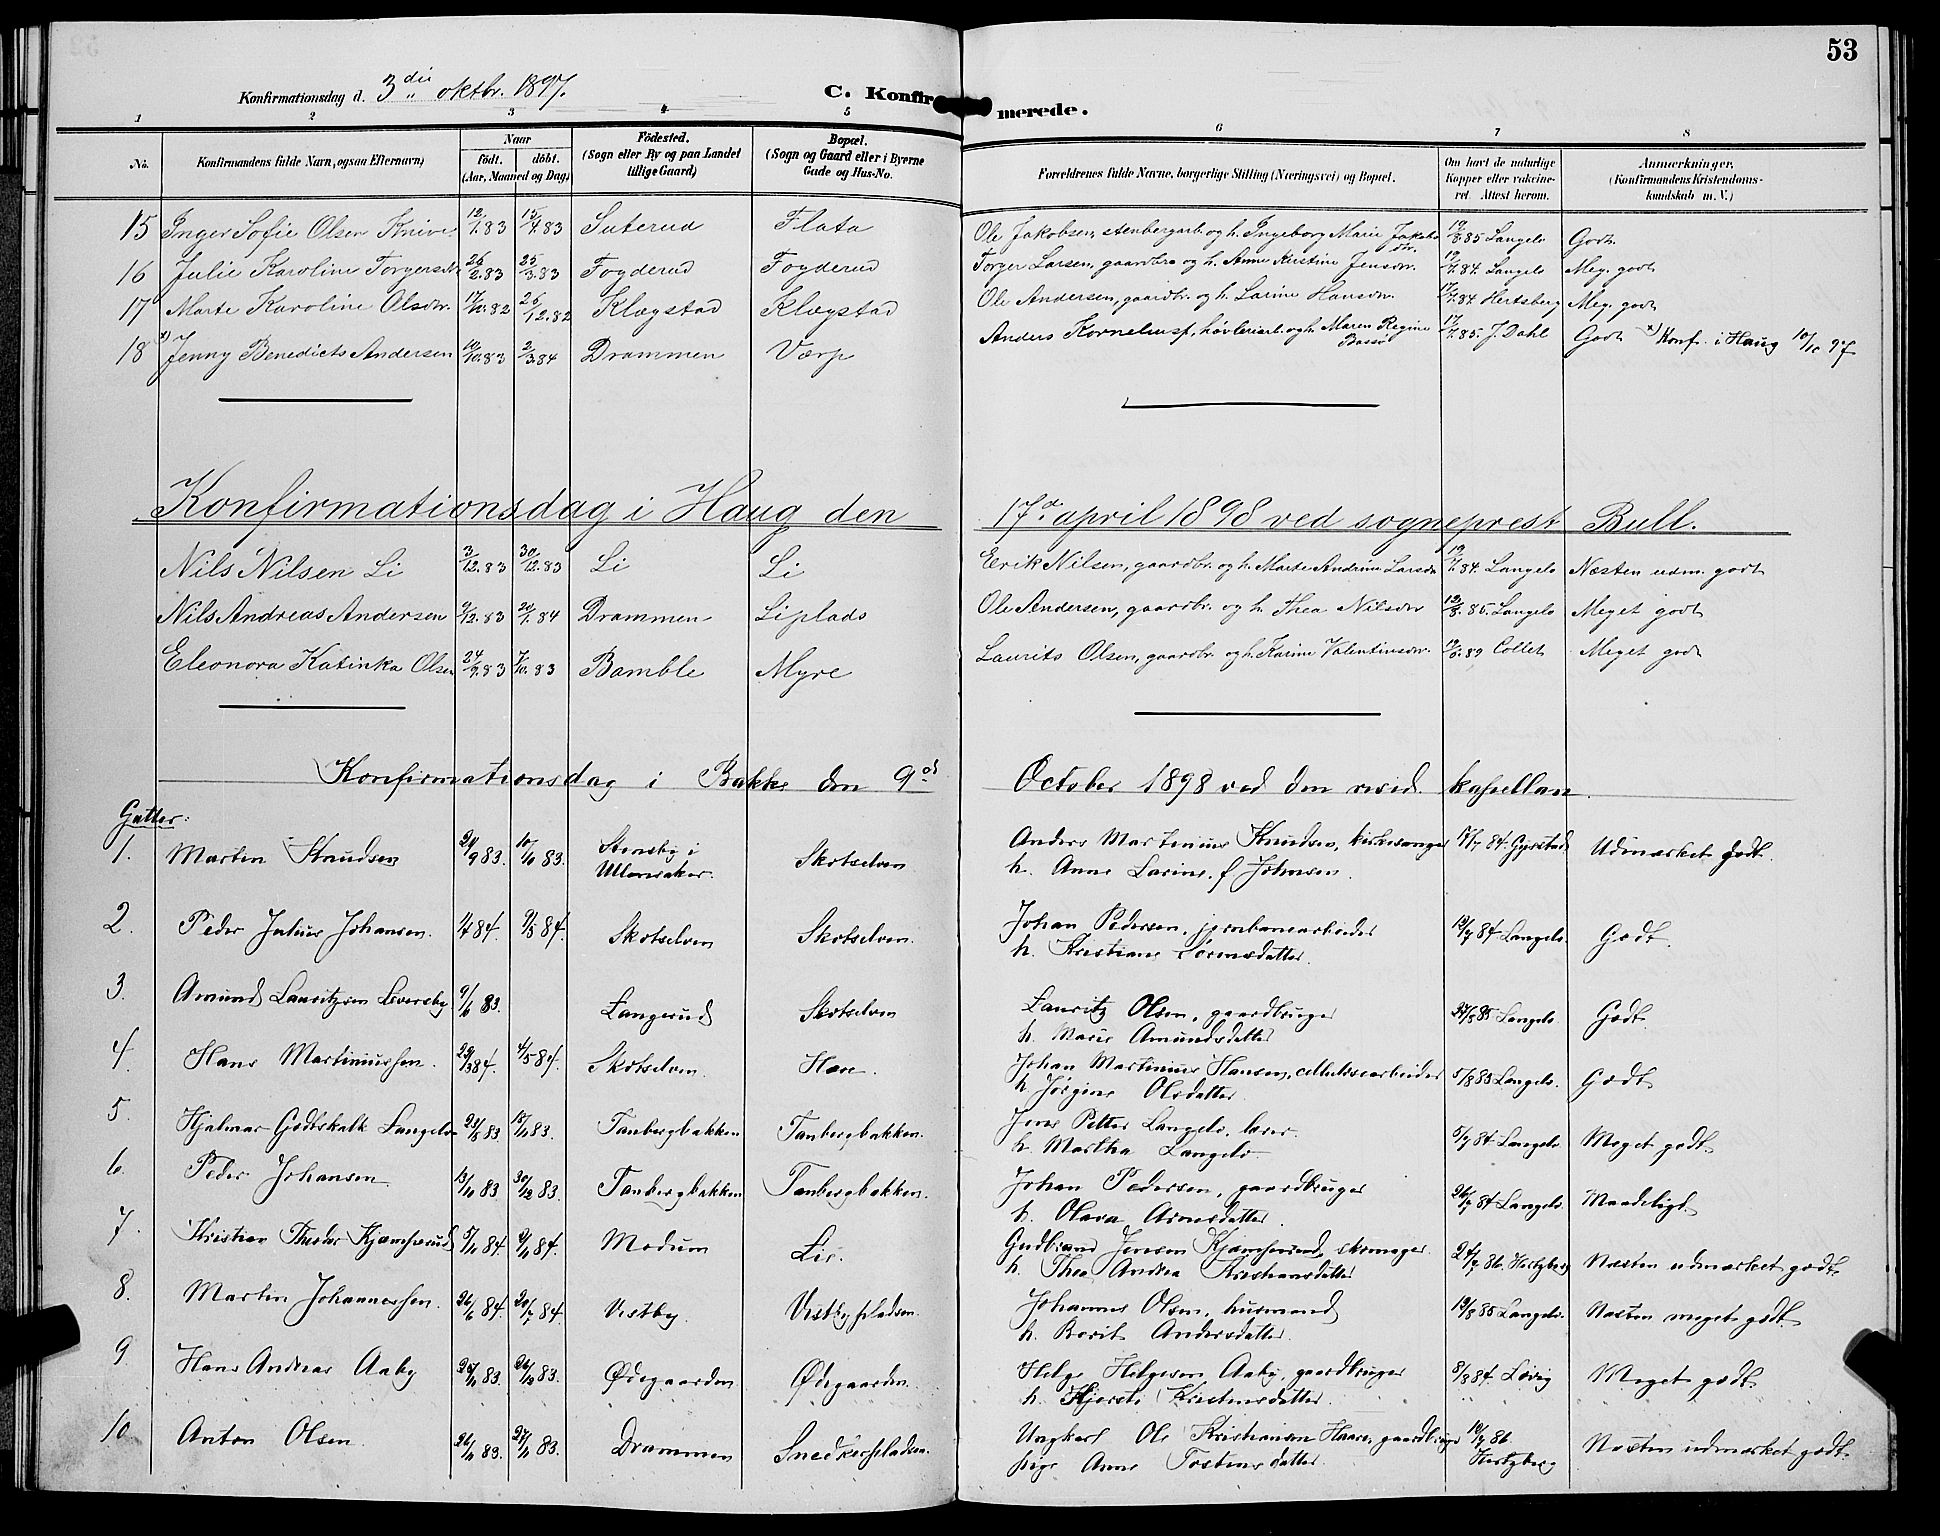 53
Konfirmationsdag d. 3die oktbr. 1897. C. Konfirmerede.
1 2 3 4 5 6 7 8
No. Konfirmandens fulde Navn, ogsaa Efternavn) Naar födt. döbt. (Aar, Maaned og Dag) Födested. (Sogn eller By og paa Landet tillige Gaard) Bopæl. (Sogn og Gaard eller i Byerne Gade og Hus-No. Forældrenes fulde Navne, borgerlige Stilling (Næringsvei) og Bopæl. Om havt de naturlige Kopper eller vakcineret. Attest herom. Anmærkninger. (Konfirmandens Kristendomskundskab m. V.)
15 Inger Sofie Olsen Knive 12/1.83 15/4.83 Saterud Flata Ole Jakobsen, stenbergarb. og h. Ingeborg Marie Jakobsdtr. 19/8.85 Langelo Godt
16 Julie Karoline Torgersdtr. 26/2.83 25/3.83 Fogderud Fogderud Torger Larsen, gaardbr. og h. Anne Kirstine Jensdr. 19/7.84. Langelo Meg. godt
17 Marte Karoline Olsdtr. 17/10.82 26/12.82 Klægstad Klægstad Ole Andersen, gaardbr. og h. Larine Hansdr. 17/7.84 Hertsberg Meg. godt
18 x) Jenny Benedicts Andersen 19/10.83 2/3.84 Drammen Værp Anders Korneliusf, høvleriarb. og h. Maren Regine Basso 17/7.85. J. Dahl Godt x) Konf. i Haug 10/10 97
Konfirmationsdag i Haug den 17de april 1898 ved sogneprest Bull.
Nils Nilsen Li 3/12.83 30/12.83 Li Li Erik Nilsen, gaardbr. og h. Marte Andrine Larsdr 19/7.84. Langelo Næsten udm. godt
Nils Andreas Andersen 9/12.83 20/1.84 Drammen Liplads Ole Andersen, gaardbr. og h. Thea Nilsdr 12/8.85. Langelo Meget godt
Eleonora Katinka Olsen 24/9.83 7/10.83 Bamble Myre Laurits Olsen, gaardbr. og h. Karine Valentinsdr. 19/6.89 Collet Meget godt
Konfirmationsdag i Bakke den 9de October 1898 ved den resid. kapellan.
Gutter:
1. Martin Knudsen 24/9 83. 10/10 83. Stensby i Ullensaker. Skotselven Anders Martinius Knudsen, kirkesanger h. Anne Larine, f. Johnsen. 17/7 84. Gjerstad Udmærket godt.
2. Peder Julius Johansen. 1/4 84. 9/5 84. Skotselven Skotselven. Johan Pedersen, jernbanearbeider h. Kristiane Sørensdatter. 19/7 84 Langelo. Godt.
3. Amund Lauritzsen Leversby 9/6 83. Langerud Skotselven Lauritz Olsen, gaardbruger h. Marie Amundsdatter 27/8 85 Langelo Godt.
4. Hans Martiniussen. 29/3 84. 4/5 84. Skotselven. Hære. Johan Martinius Hansen, cellulosearbeider h. Jørgine Olsdatter. 5/8 85 Langelo. Godt
5. Hjalmar Godtskalk Langelo 23/5 83. 18/11 83. Tanbergbakken Tanbergbakken. Jens Petter Langelo, lærer. h. Martha Langelo. 5/7 84. Langelo. Meget godt.
6. Peder Johansen. 13/10 83. 30/12 83. Tanbergbakken Tanbergbakken. Johan Pedersen, gaardbruger h. Olava Arnesdatter. 26/7 84 Langelo. Maadeligt.
7. Kristian Theodor Kjæmperud 5/10 84. 9/11 84. Modum Lie. Gudbrand Jensen Kjæmperud, skomager. h. Thea Andrea Kristiansdatter 24/7 86. Hertzberg Næsten udmærket godt.
8. Martin Johannessen. 26/6 84. 20/7 84. Vestby. Vestbypladsen. Johannes Olsen, husmand h. Berit Andersdatter. 19/8 85 Langelo. Næsten meget godt.
9. Hans Andreas Aaby 25/11 83. 26/12 83. Ødegaarden Ødegaarden. Helge Helgesen Aaby, gaardbruger h. Kjersti Kristensdatter. 8/8 84. Løvig Meget godt.
10. Anton Olsen. 26/11 83. 27/11 83. Drammen Snedkerpladsen. Ungkarl Ole Kristiansen Haare, gaardbruger pige Anne Tostensdatter. 19/7 86 Hertzberg Næsten udmærket godt.